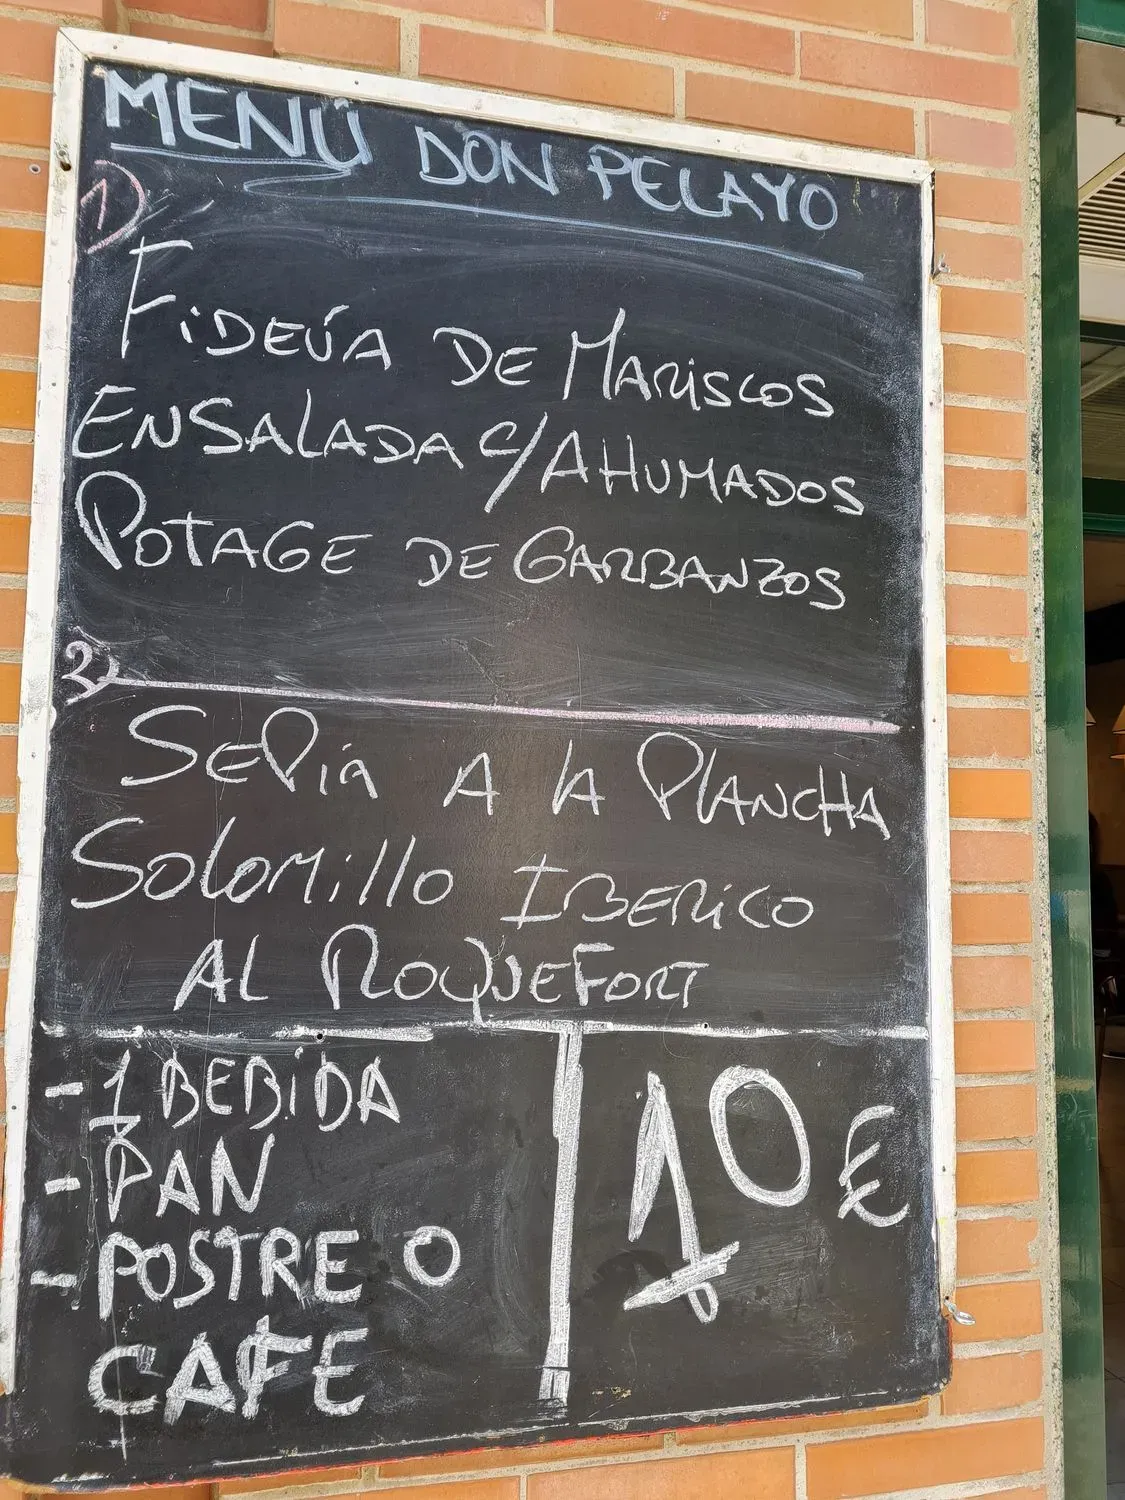 MENÚ DON PELAYO
1)
FiDEÚA DE MARiSCOS
ENSALADA C/AHUMADOS
POTAGE DE GARBANZOS
2)
SEPiA A lA PlANCHA
Solomillo IBERiCO
AL ROQUEFORT
- 1 BEBiDA
- PAN
- POSTRE O
CAFE
10 €